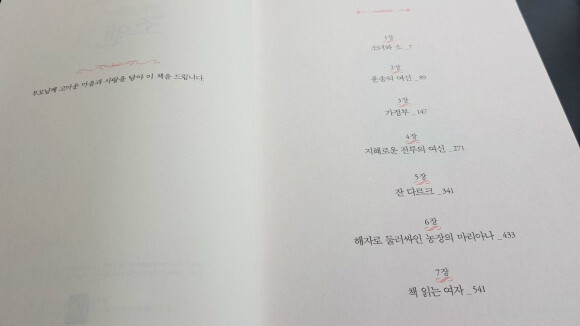 부모님께 고마운 마음과 사랑을 담아 이 책을 드립니다.
1장
소녀와 소 _7
2장
운송의 여신 _89
3장
가정부 _147
4장
지혜로운 전투의 여신 _271
5장
잔 다르크 _341
6장
해자로 둘러싸인 농장의 마리아나 _433
7장
책 읽는 여자 _541